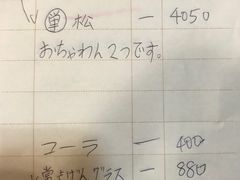 単 松 — 4050
おちゃわん2つです。
コーラ — 400
グラス — 880